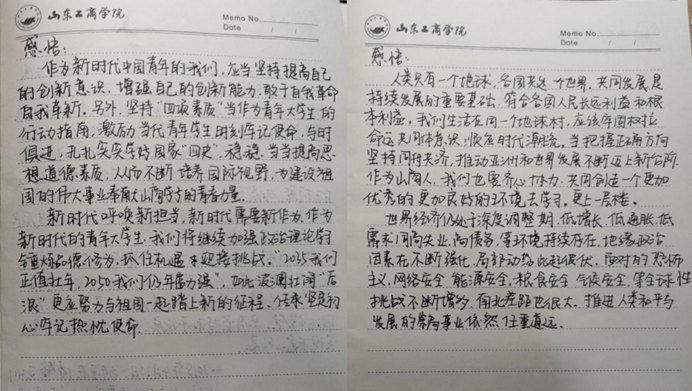 山东工商学院
Memo No.
Date / /
感悟:
作为新时代中国青年的我们,应当坚持提高自己
的创新意识,增强自己的创新能力,敢于自我革命
自我革新。另外,坚持"四史素质"当作青年大学生的
行动指南,激励当代青年学生时刻牢记使命,与时
俱进,扎扎实实学好国家"四史",稳稳当当提高思
想道德素质,从而不断培养国际视野,为建设祖
国的伟大事业奉献山商学子的青春力量。
新时代呼唤新担当,新时代需要新作为。作为
新时代的青年大学生,我们将继续加强政治理论学习
锤炼品德修为,抓住机遇,迎接挑战,"2035我们
正值壮年,2050我们仍年富力强",如此波澜壮阔"后
浪"更应努力与祖国一起踏上新的征程,传承坚定初
心牢记热忱使命.
山东工商学院
Memo No.
Date / /
感悟:
人类只有一个地球,各国共处一个世界,共同发展是
持续发展的重要基础,符合各国人民长远利益和根
本利益。我们生活在同一个地球村,应该牢固树立
命运共同体意识,顺应时代潮流,当把握正确方向
坚持同舟共济,推动亚洲和世界发展不断迈上新台阶.
作为山商人,我们也要齐心协力,共同创造一个更加
优秀的更加良好的环境去学习。更上一层楼。
世界经济仍处于深度调整期,低增长、低通胀、低
需求同高失业、高债务、等环境持续存在,地缘政治
因素在不断强化,局部动荡此起彼伏。面对的恐怖
主义,网络安全、能源安全、粮食安全、气候安全、等全球性
挑战不断增多,南北差距也很大。推进人类和平与
发展的崇高事业依然任重道远。